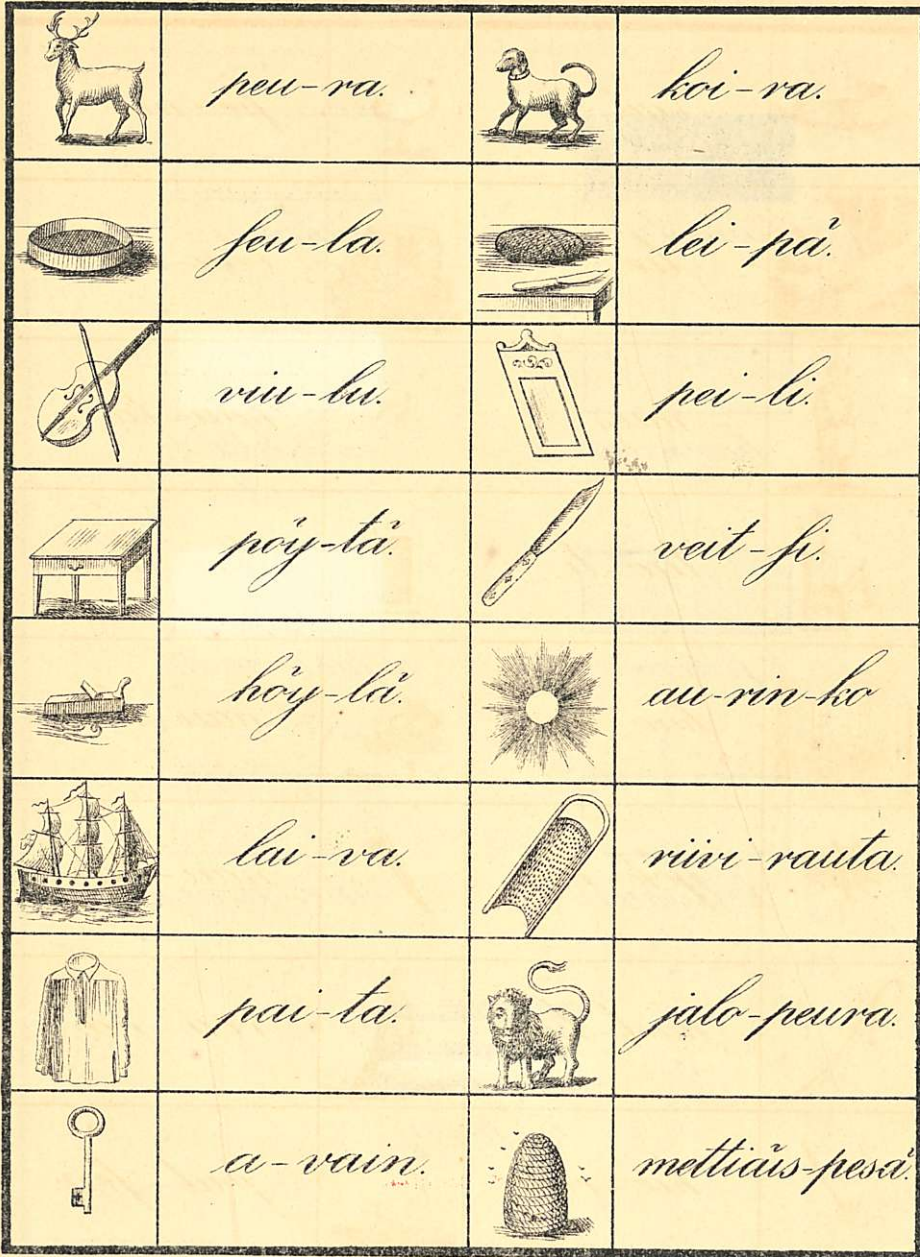 peu-ra.
koi-ra.
seu-la.
lei-pä.
viu-lu.
pei-li.
pöy-tä.
veit-si.
höy-lä.
au-rin-ko
lai-va.
riivi-rauta.
pai-ta.
jalo-peura.
a-vain.
mettiäis-pesä.